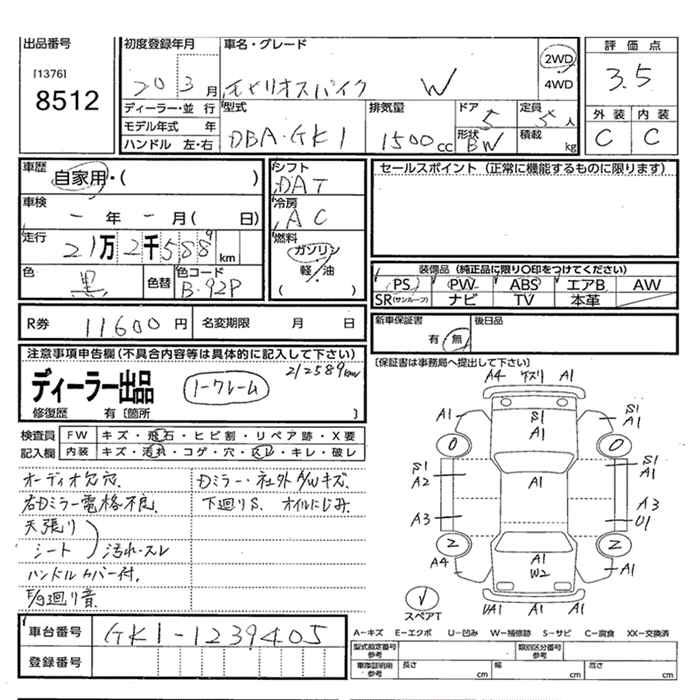 出品番号
[1376]
8512
初度登録年月
20 3月
ディーラー・並 行
モデル年式 年
ハンドル 左・右
車名・グレード
モビリオスパイク W
2WD
4WD
型式
DBA・GK1
排気量
1500cc
ドア
5
形状
BW
定員
5人
積載
kg
評価点
3.5
外装 内装
C C
車歴
自家用・( )
車検
ー 年 ー 月( 日)
走行
21万2千588 km
色
黒
色替
色コード
B-92P
シフト
DAT
冷房
AC
燃料
ガソリン
軽/油
( )
セールスポイント (正常に機能するものに限ります)
装備品 (純正品に限り○印をつけてください)
PS PW ABS エアB AW
SR(サンルーフ) ナビ TV 本革
R券 11600円 名変期限 月 日
新車保証書
有 無
後日品
[保証書は事務局へ提出して下さい]
注意事項申告欄(不具合内容等は具体的に記入して下さい)
212589km
ディーラー出品
ノークレーム
修復歴 有[箇所 ]
検査員
記入欄
FW キズ・飛石・ヒビ割・リペア跡・X要
内装 キズ・汚れ・コゲ・穴・スレ・キレ・破レ
オーディオ欠穴.
右Dミラー電格不良.
天張り
シート
汚れ・スレ
ハンドルカバー付.
F/9廻り音.
Dミラー・社外A/Wキズ.
下廻りS. オイルにじみ.
A4 ケズリ A1
A1 S1 A1 S1 A1
0 0
A1
S1 A2 S1 A1
A3 A3 U1
2 2
A4 A1 W2 A1
スペアT
UA1 A1 A1
車台番号 GK1-1239405
登録番号
A−キズ E−エクボ U−凹み W−補修跡 S−サビ C−腐食 XX−交換済
型式指定番号
参考
類別区分番号
参考
車庫証明用
参考
長さ cm 幅 cm 高さ cm